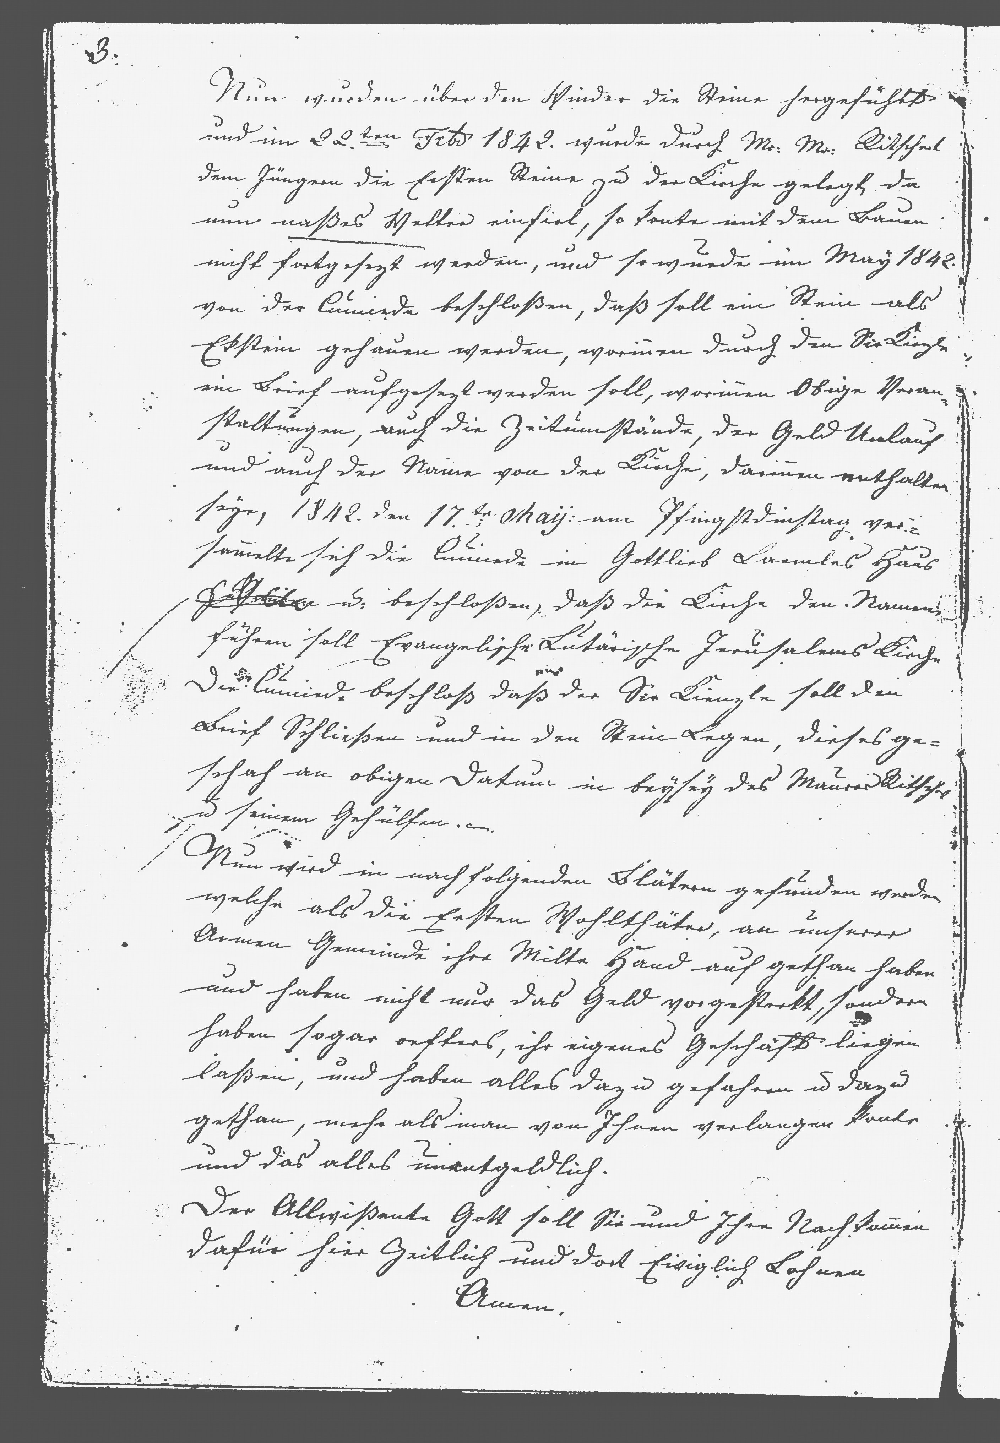 3.
Nun wurden über den Winder die Steine hergeführt
und im 22.ten Feb 1842. wurde durch Mr: Mr: Ritschert
dem Jüngern die Ersten Steine zu der Kirche gelegt, da
nun naßes Wetter einfiel, so konte mit dem Bauen
nicht fortgesezt werden, und so wurde im May 1842
von der Cumede beschloßen, daß soll ein Stein als
Ekstein gehauen werden, worinnen durch den Sir Kienzle
ein Brief aufgesezt werden soll, worinnen Obige Veran-
staltungen, auch die Zeitumstände, der Geld Umlauf
und auch der Name von der Kirche, darinnen enthalten
seye, 1842. den 17.te Maij: am Pfingstdinstag ver-
samelte sich die Cumede in Gottlieb Haus
u: beschloßen, daß die Kirche den Namen
führen soll Evangelische Lutärische Jerusalems Kirche
Die Cumede beschloß daß der Sir Kienzle soll den
Brief Schließen und in den Stein Legen, dieses ge=
schah an obigen Datum in beysey des Maurer Ritschert
u seinem Gehülfen.
Nun wird in nachfolgenden Blätern gefunden werden
welche als die Ersten Wohlthäter, an unserer
Armen Gemeinde ihre Milte Hand auf gethan haben
und haben nicht nur das Geld vorgestrekt, sondern
haben sogar oefters, ihr eigenes Geschäft liegen
laßen, und haben alles dazu gefahren u dazu
gethan, mehr als man von Ihnen verlangen konte
und das alles unentgeldlich.
Der Allwißente Gott soll Sie und Ihre Nachkommen
dafür hier Zeitlich und dort Ewiglich Lohnen
Amen.